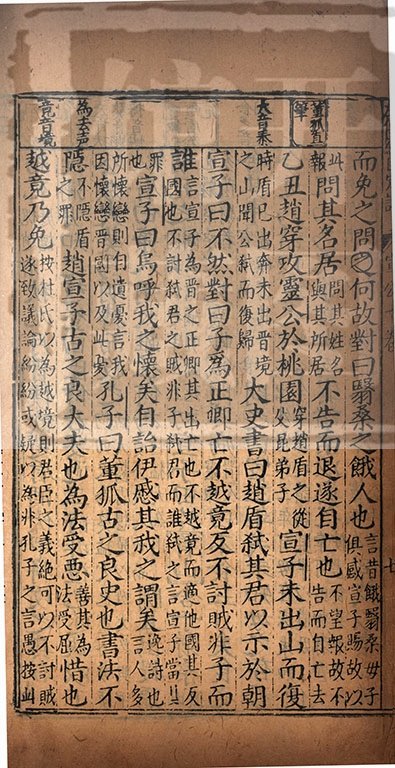 而免之問之何故對曰翳桑之餓人也言昔餓翳桑母子俱感宣子賜故以
此報問其名居問其姓名與其所居不告而退遂自亡也不望報故不告而自亡去
董狐直筆
乙丑趙穿攻靈公於桃園穿趙盾之從父昆弟子宣子未出山而復
大音泰
時盾已出奔未出晉境之山聞公弒而復歸大史書曰趙盾弒其君以示於朝
宣子曰不然對曰子為正卿亡不越竟反不討賊非子而
誰言宣子為晉之正卿其出亡也不越竟而適他國其反國也不討弒君之賊非子弒君而誰弒之言宣子當此
罪也宣子曰烏呼我之懷矣自詒伊慼其我之謂矣逸詩也言人多
所懷戀則自遺憂言我因懷戀晉國以及此憂孔子曰董狐古之良史也書法不
為去声
隱不隱盾之罪趙宣子古之良大夫也為法受惡善其為法受屈惜也
竟音境
越竟乃免按杜氏以為越境則君臣之義絕可以不討賊遂致議論紛紛或疑以為非孔子之言愚按此